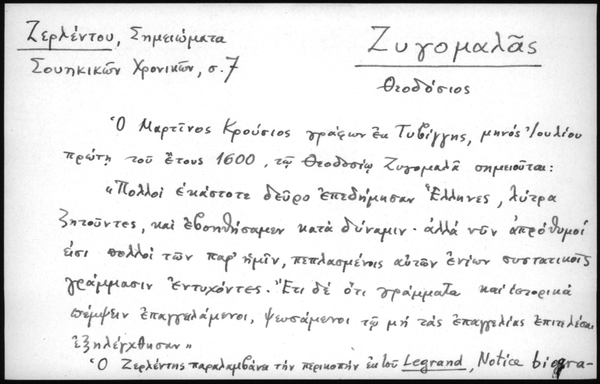 Ζερλέντου, Σημειώματα
Σουηκικῶν Χρονικῶν, σ. 7
Ζυγομαλᾶς
Θεοδόσιος
Ὁ Μαρτῖνος Κρούσιος γράφων ἐκ Τυβίγγης, μηνός Ἰουλίου
πρώτῃ τοῦ ἔτους 1600, τῷ Θεοδοσίῳ Ζυγομαλᾶ σημειοῦται:
«Πολλοί ἑκάστοτε δεῦρο ἐπεδήμησαν Ἕλληνες, λύτρα
ζητοῦντες, καί ἐβοηθήσαμεν κατά δύναμιν· ἀλλά νῦν ἀπρόθυμοί
εἰσι πολλοί τῶν παρ' ἡμῖν, πεπλασμένοις αὐτῶν ἐνίων συστατικοῖς
γράμμασιν ἐντυχόντες. Ἔτι δέ ὅτι γράμματα καί ἱστορικά
πέμψειν ἐπαγγελάμενοι, ψευσάμενοι τῷ μή τάς ἐπαγγελίας ἐπιτελέσαι
ἐξηλέγχθησαν»
Ὁ Ζερλέντης παραλαμβάνει τήν περικοπήν ἐκ τοῦ Legrand, Notice biogra-